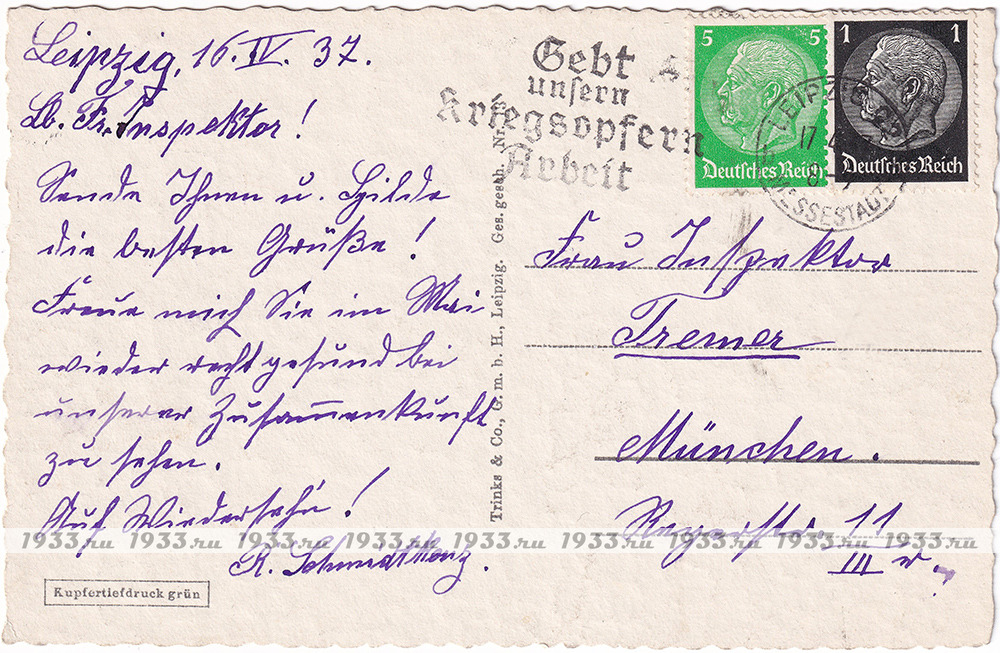 Leipzig, 16. IV. 37.
Lb. Fr. Inspektor!
Sende Ihnen u. Hilde
die besten Grüße!
Freue mich Sie im Mai
wieder recht gesund bei
unserer Zusammenkunft
zu sehen.
Auf Wiedersehn!
R.
Kupfertiefdruck grün
Trinks & Co., G. m. b. H., Leipzig. Ges. gesch. Nr.
Gebt
unsern
Kriegsopfern
Arbeit
5 5
Deutsches Reich
1 1
Deutsches Reich
LEIPZIG
17.4
MESSESTADT
Frau Inspektor
Tremer
München.
Regerstr. 11
III r.
1933.ru 1933.ru 1933.ru 1933.ru 1933.ru 1933.ru 1933.ru 1933.ru 1933.ru